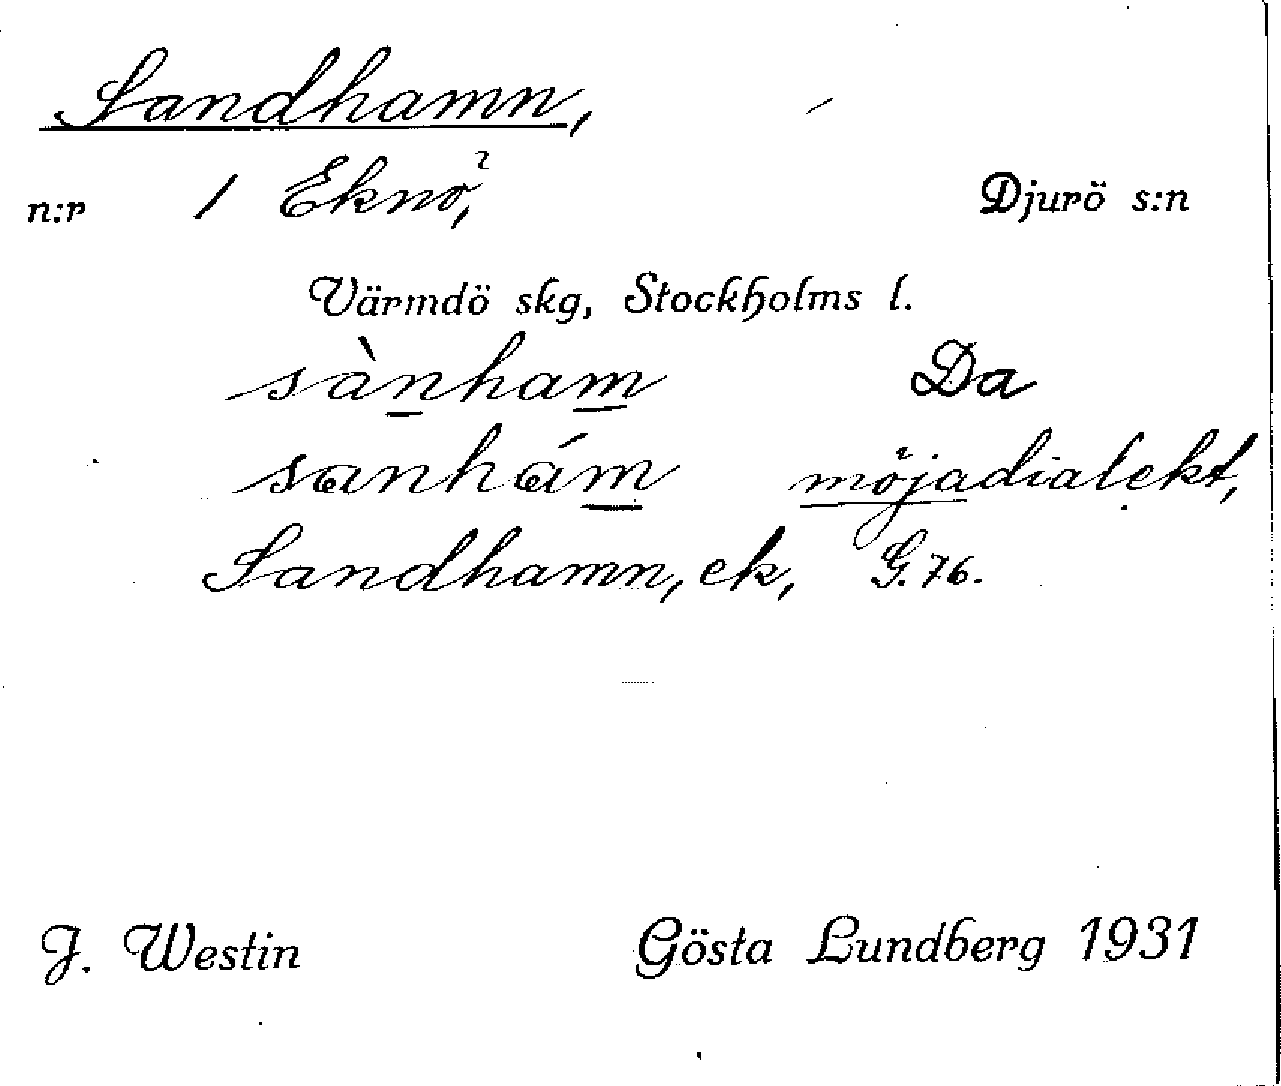 Sandhamn,
n:r 1 Eknö, Djurö s:n
Värmdö skg, Stockholms l.
sànham Da
sanhám möjadialekt,
Sandhamn, ek, G. 76.
J. Westin Gösta Lundberg 1931